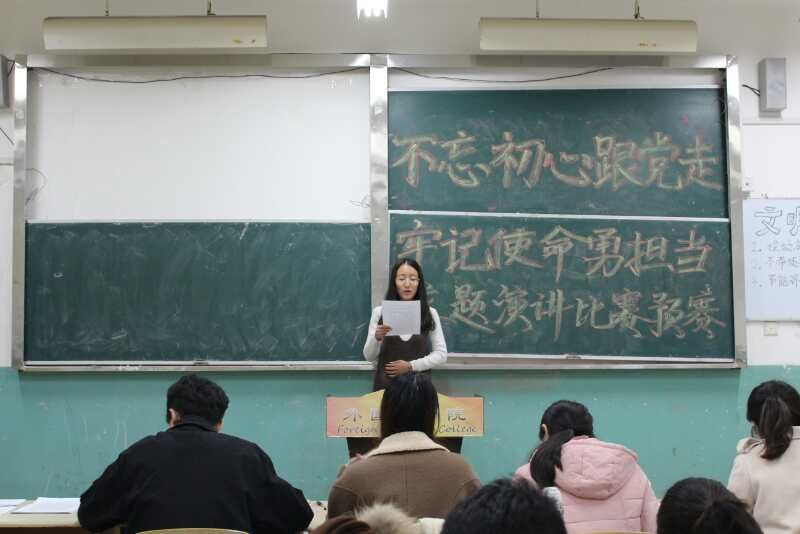 不忘初心跟党走
牢记使命勇担当
题演讲比赛预赛
外 院
Foreign College
文明